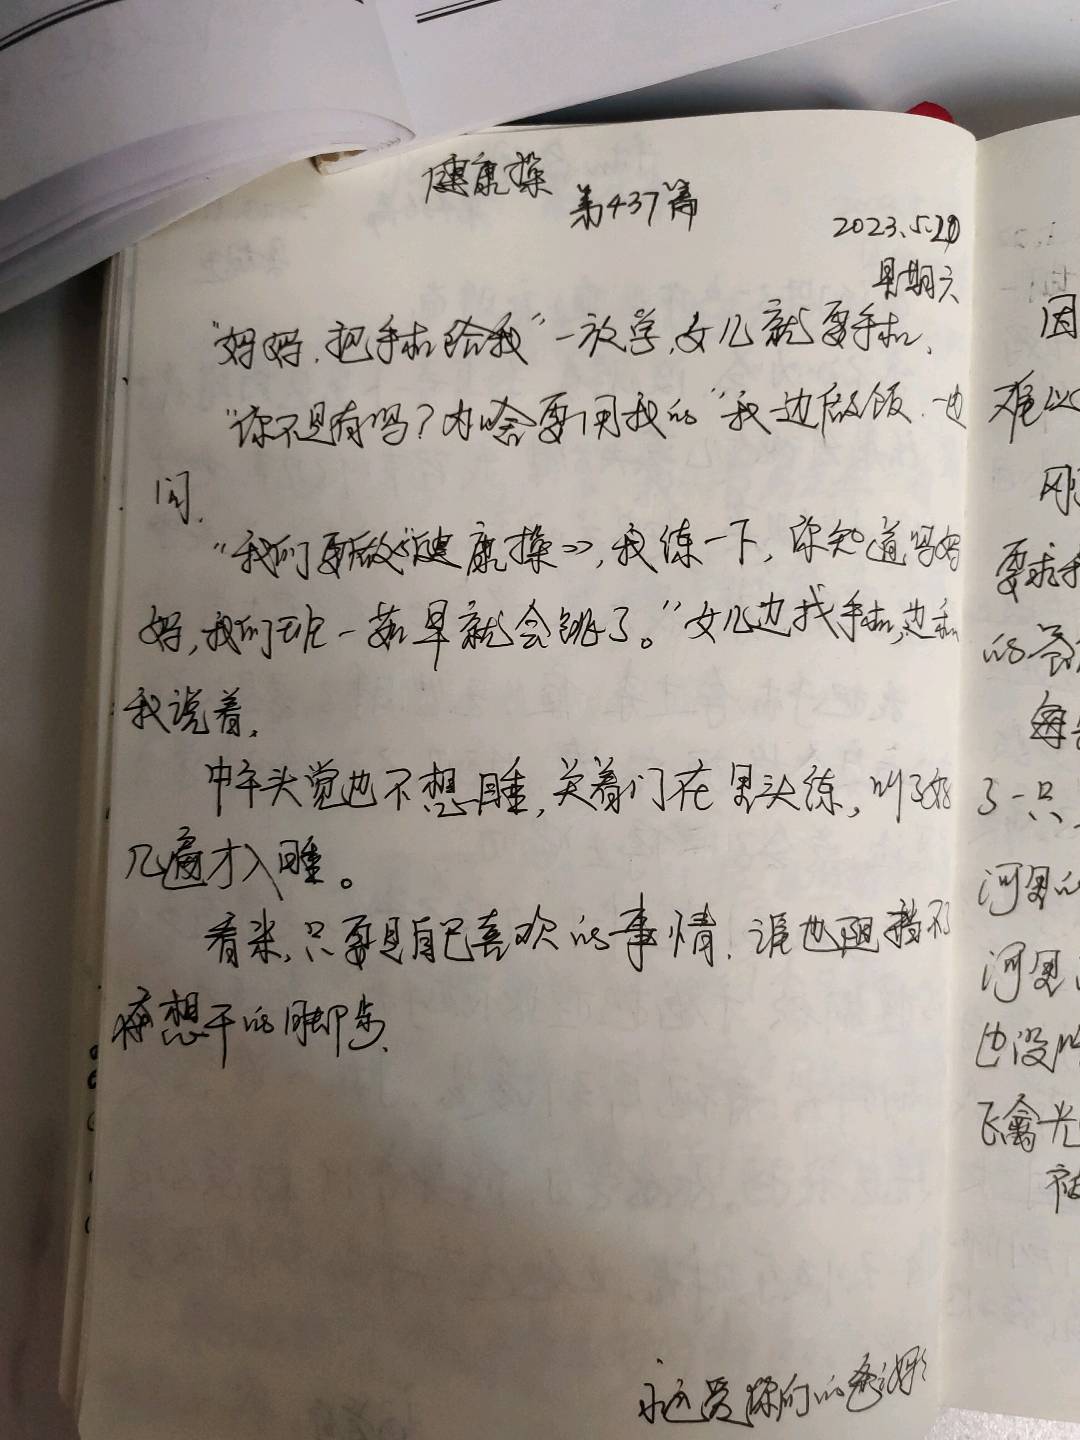 健康操
第437篇
2023.5.20
星期六
“妈妈,把手机给我”一放学,女儿就要手机.
“你不是有吗?为啥要用我的”我边做饭.边
问.
“我们要做《健康操》,我练一下,你知道吗妈
妈,我们班一茹早就会跳了。”女儿边找手机,边和
我说着.
中午头觉也不想睡,关着门在里头练,叫了好
几遍才入睡。
看来,只要是自己喜欢的事情.谁也阻挡不
想干的脚步.
永远爱你们的
因
难以
刚
要求我
的
每
了一只
河里的
河里
也没
飞禽